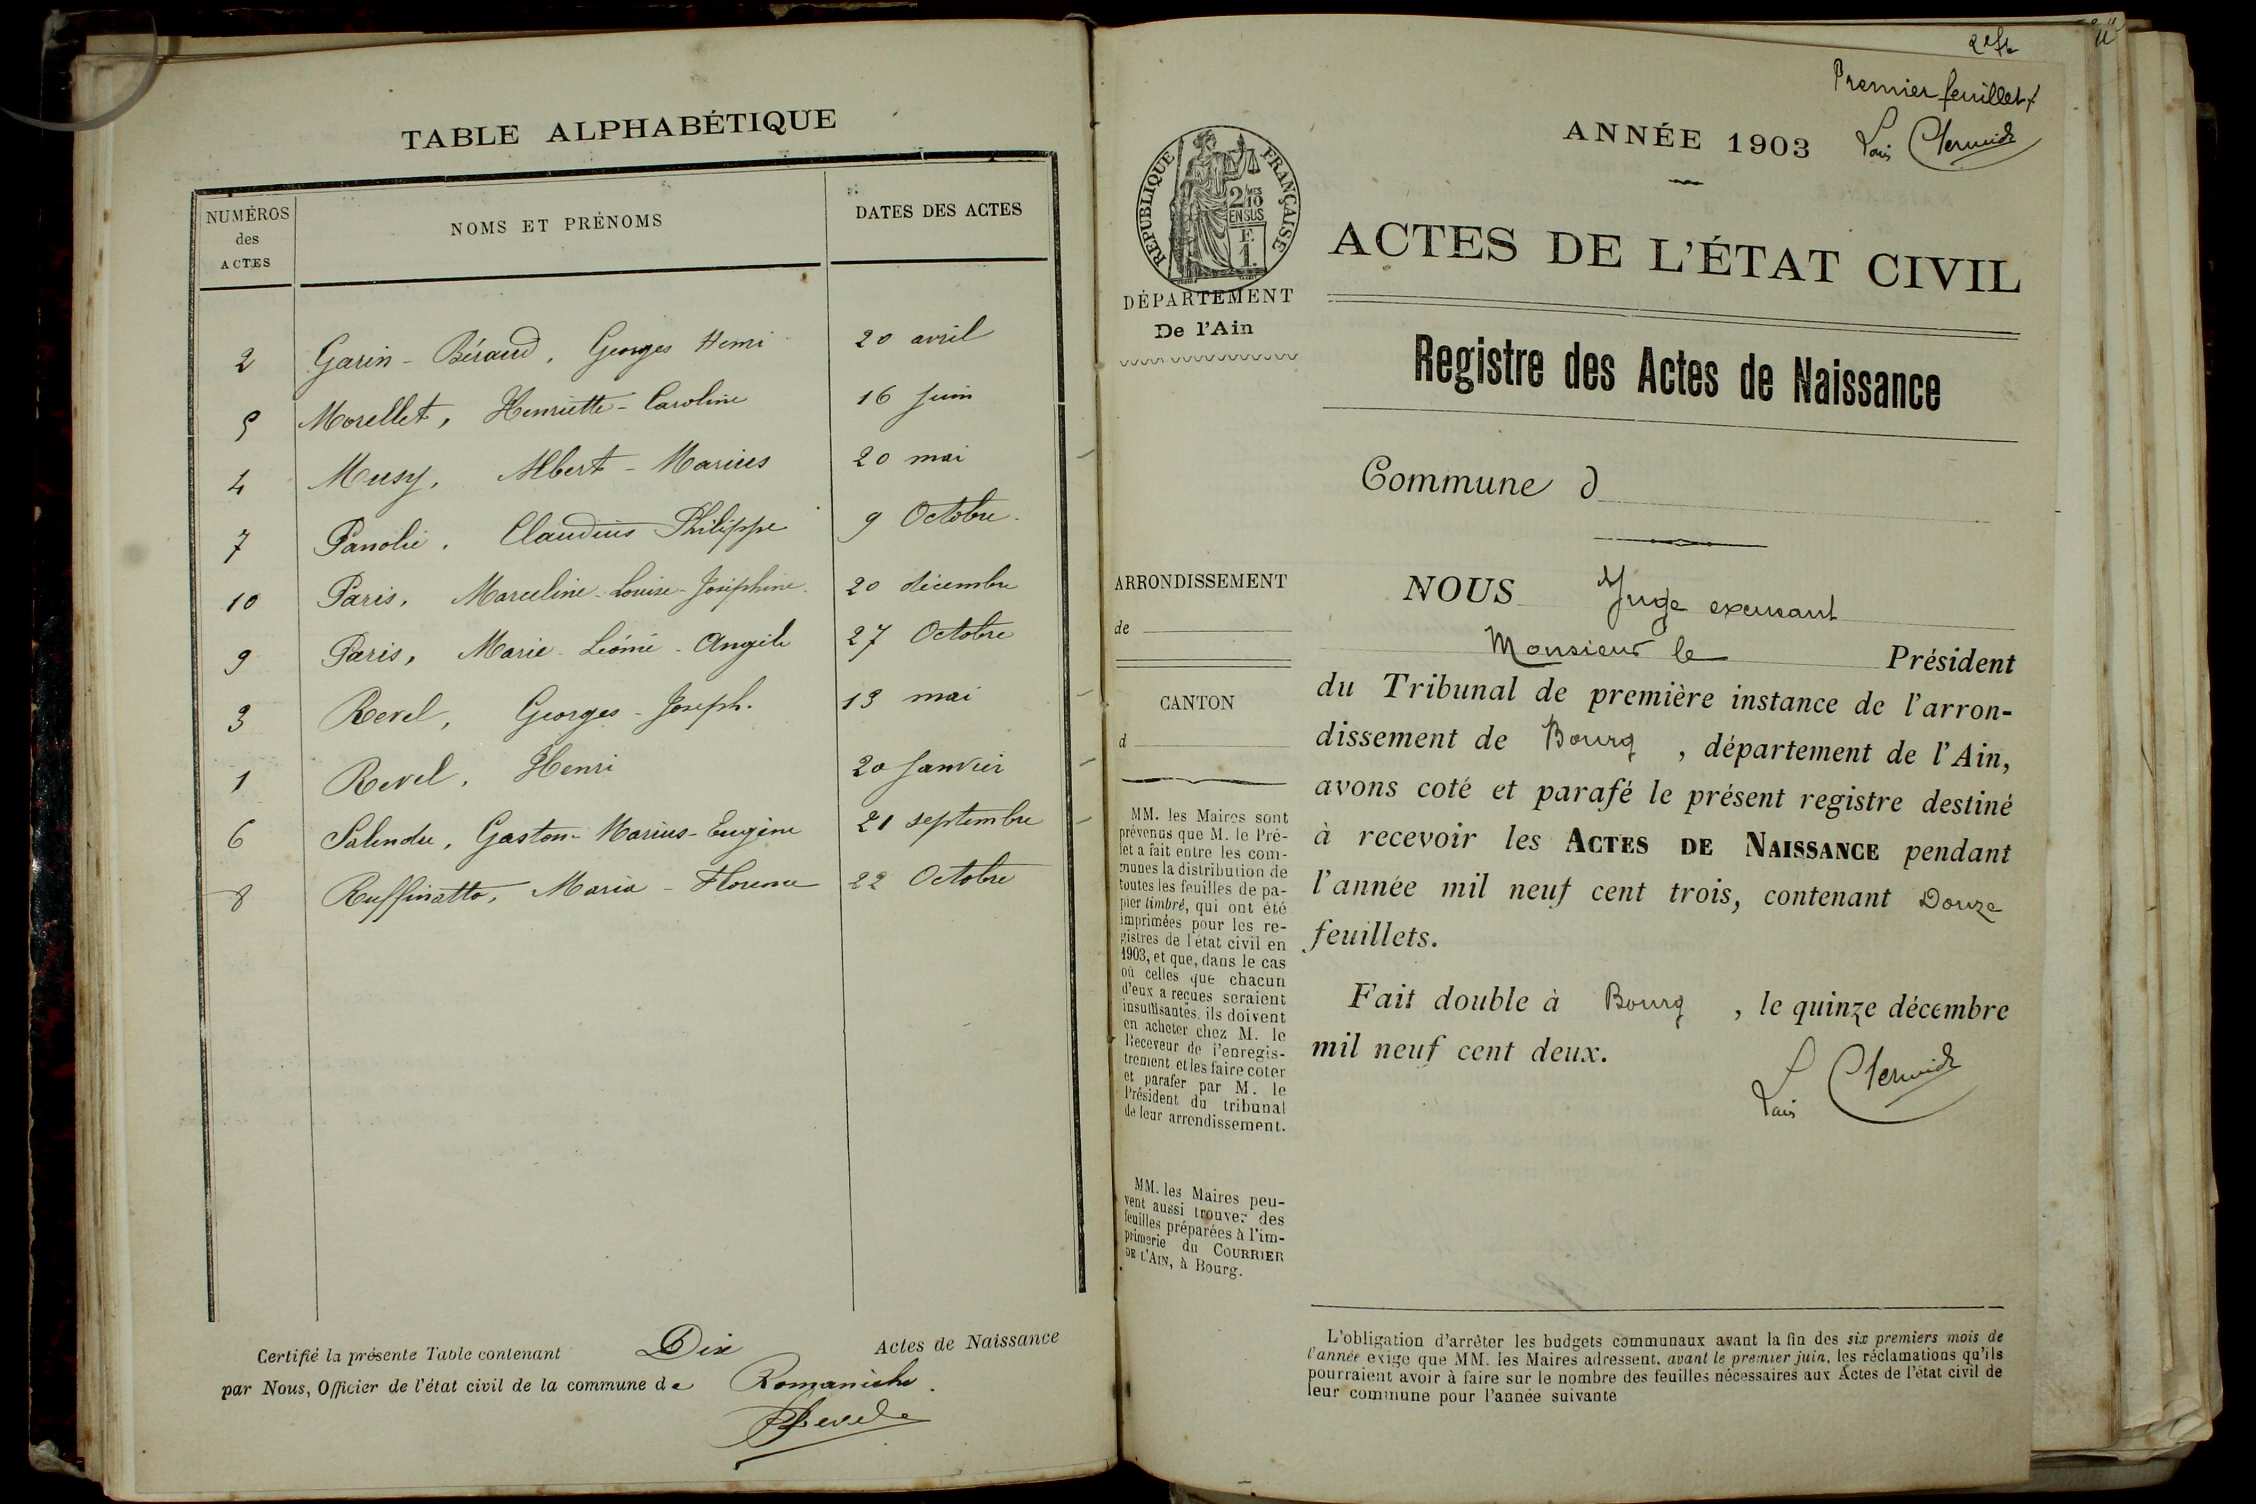 TABLE ALPHABÉTIQUE
NUMÉROS des ACTES
NOMS ET PRÉNOMS
DATES DES ACTES
2 Garin - Béraud, Georges Henri 20 avril
5 Morellet, Henriette - Caroline 16 Juin
4 Musy, Albert - Marius 20 mai
7 Panolié, Claudius Philippe 9 Octobre
10 Paris, Marceline - Louise - Joséphine 20 décembre
9 Paris, Marie - Léonie - Angèle 27 Octobre
3 Revel, Georges - Joseph. 13 mai
1 Revel, Henri 20 Janvier
6 Salendre, Gaston - Marius - Eugène 21 septembre
8 Ruffinatto, Maria - Florence 22 Octobre
Certifié la présente Table contenant Dix Actes de Naissance
par Nous, Officier de l'état civil de la commune de Romanèche
Revel
Premier feuillet
ANNÉE 1903
RÉPUBLIQUE FRANÇAISE
2/10
EN SUS
F.
1.
DÉPARTEMENT
De l'Ain
ACTES DE L'ÉTAT CIVIL
Registre des Actes de Naissance
Commune d
ARRONDISSEMENT
de
CANTON
d
MM. les Maires sont
prévenus que M. le Pré-
fet a fait entre les com-
munes la distribution de
toutes les feuilles de pa-
pier timbré, qui ont été
imprimées pour les re-
gistres de l'état civil en
1903, et que, dans le cas
où celles que chacun
d'eux a reçues seraient
insuffisantes, ils doivent
en acheter chez M. le
Receveur de l'enregis-
trement et les faire coter
et parafer par M. le
Président du tribunal
de leur arrondissement.
MM. les Maires peu-
vent aussi trouver des
feuilles préparées à l'im-
primerie du COURRIER
DE L'AIN, à Bourg.
NOUS Juge excusant
Monsieur le Président
du Tribunal de première instance de l'arron-
dissement de Bourg, département de l'Ain,
avons coté et parafé le présent registre destiné
à recevoir les ACTES DE NAISSANCE pendant
l'année mil neuf cent trois, contenant Douze
feuillets.
Fait double à Bourg, le quinze décembre
mil neuf cent deux.
L'obligation d'arrêter les budgets communaux avant la fin des six premiers mois de
l'année exige que MM. les Maires adressent, avant le premier juin, les réclamations qu'ils
pourraient avoir à faire sur le nombre des feuilles nécessaires aux Actes de l'état civil de
leur commune pour l'année suivante